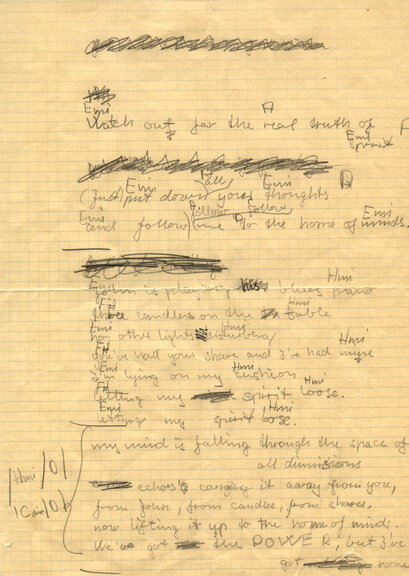 Emi A
Watch out for the real truth of
Emi
spirit
Emi all Emi D
(Just) put down your thoughts
Emi follow D follow Emi
and follow me to the home of minds.
Hmi
John is playing his blues piano
Hmi
three candles on the table
Emi Emi
no other lights disturbing
Hmi
you've had your share and I've had mine
Emi Hmi
I'm lying on my cushion
Hmi
letting my spirit loose.
Emi Hmi
letting my spirit loose.
my mind is falling through the space of
all dimisions
echos's carrying it away from you,
from John, from candles, from shares.
now lifting it up to the home of minds.
We've got the POWER, but I've
got none